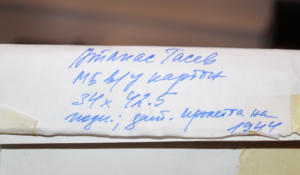 Атанас Тасев
МБ в/у картон
34 x 42.5
подп.; дат. пролетта на
1944